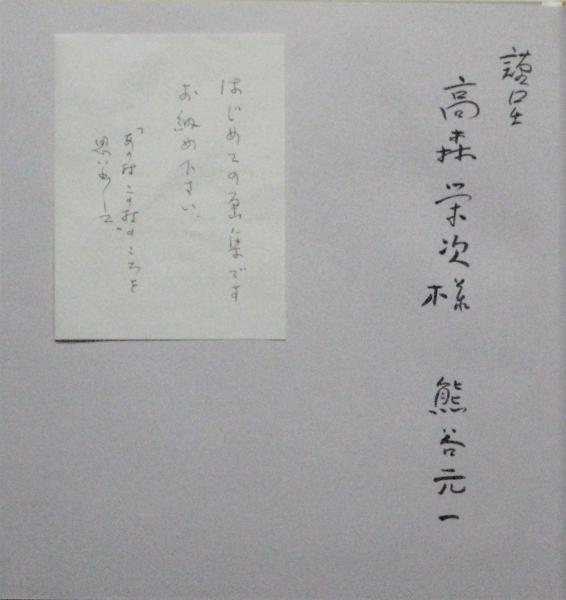 謹呈
高森栄次様
熊谷元一
はじめての画集です
お納め下さい
ころを
思い出して